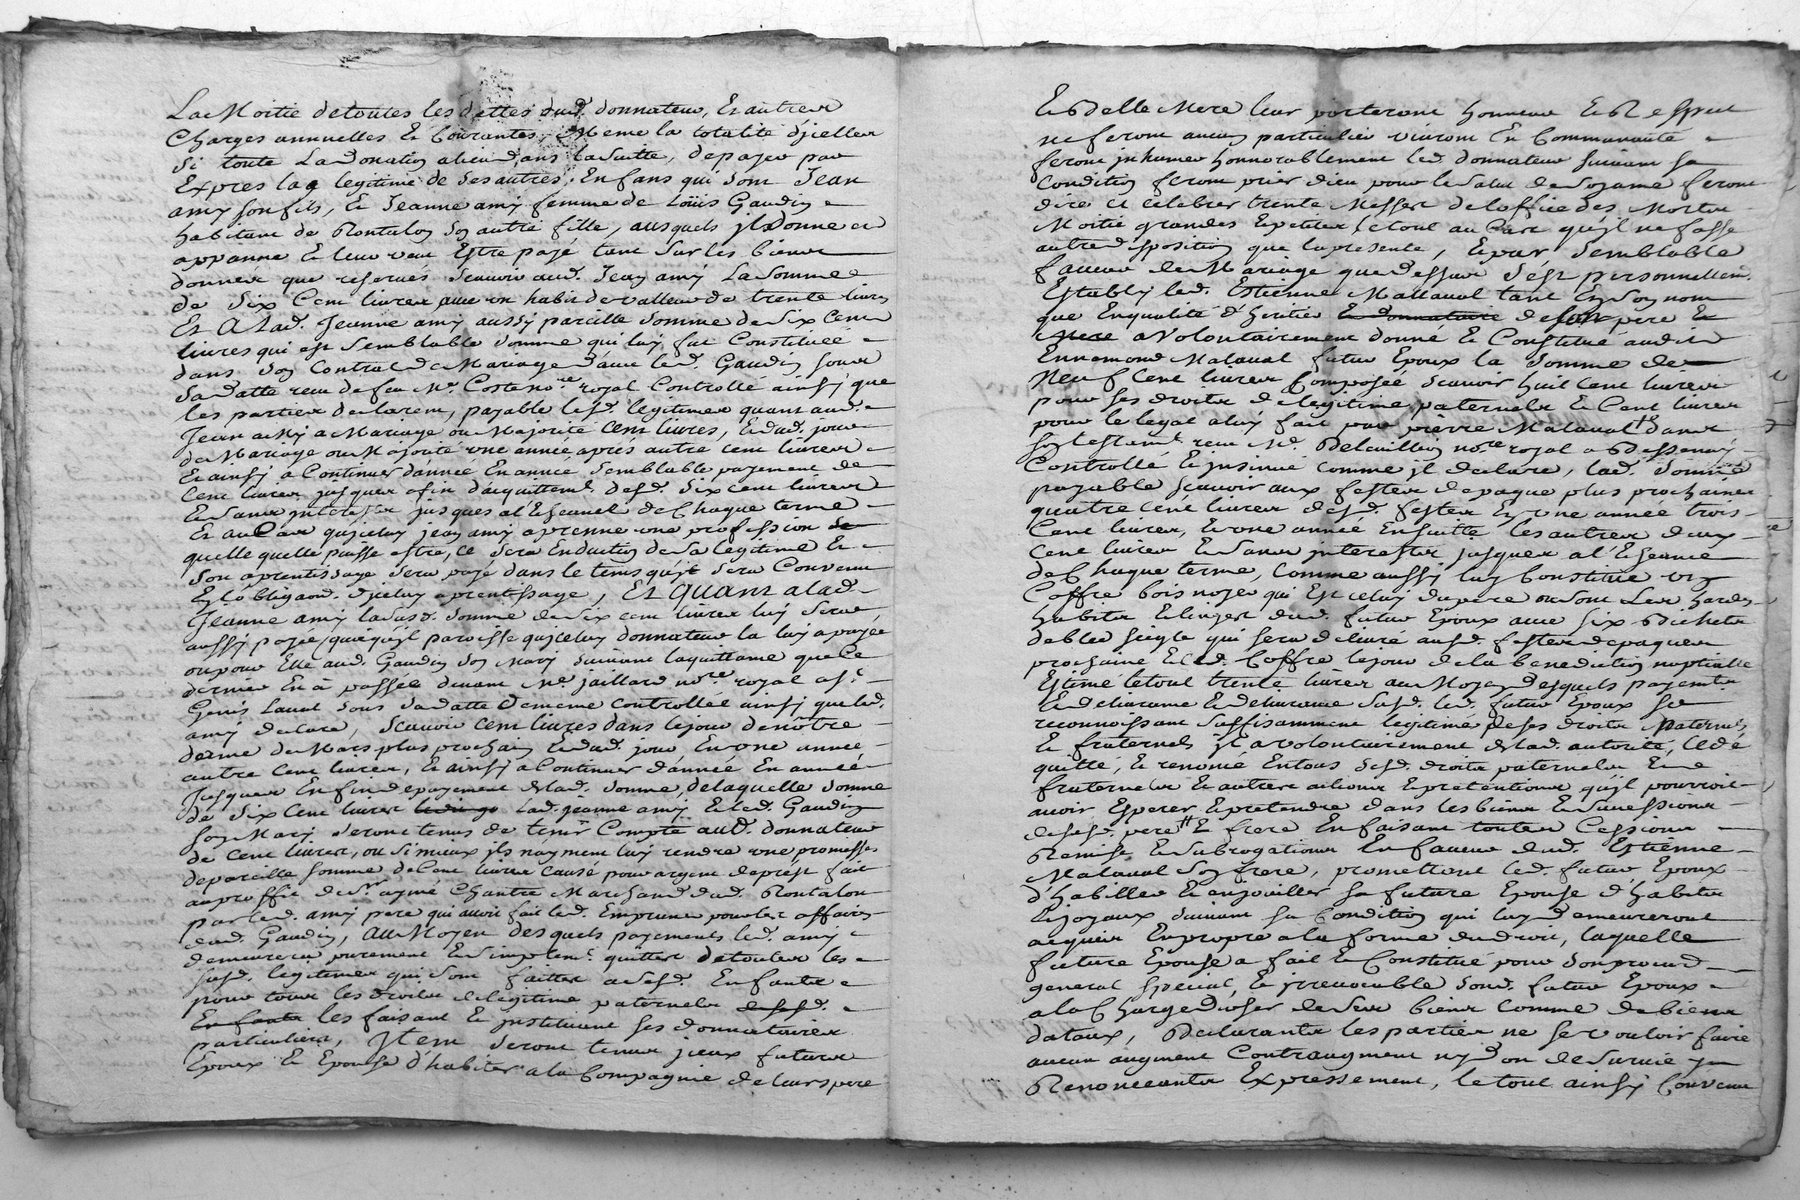 La Moitie detoutes les dettes dud. donnateur, Et autres
Charges annuelles Et Courantes, Meme la totalité d'jcelles
Si toute La donation alieu dans lasuitte, depayer par
Expres la legitime de Ses autres Enfans qui sont Jean
amy son fils, Et Jeanne amy femme de Loüis Gaudin
habitant de Rontalon son autre fille, ausquels jl donne et
appanne Et leur veut Estre payé tant Sur les biens
donnés que reservés Scavoir aud. Jean amy La Somme
de Six Cent livres avec un habit de valleur de trente livres
Et A Lad. Jeanne amy aussy pareille Somme de Six Cent
livres qui est Semblable Somme qui luy fut Constituée
dans Son Contrat de Mariage d'avec led. Gaudin sous
Sa datte receu de feu Me. Coste nore. royal Controllé ainsy que
les parties declarent, payable lesd. legitimes quant aud.
Jean amy a Mariage ou Majorité Cent livres, Et dud. jour
de Mariage ou Majorité une année aprés autre cent livres
Et ainsy a Continuer d'année En année Semblable payement de
Cent livres jusques a fin d'acquittemt. desd. Six cent livres
Et Sans jnterestz jusques al'Escheance de Chaque terme
Et au Cas qu'jceluy jean amy aprenne une profession
quelle quelle puisse estre, Ce Sera En deduction de Sa legitime Et
Son aprentissage Sera payé dans le tems qu'jl Sera Convenu
En l'obligaon. d'jceluy aprentissage, Et Quant a lad.
Jeanne amy lasusd. Somme de Six cent livres luy Sera
aussy payée quoiqu'jl paroisse qu'jceluy donnateur la luy a payée
ou pour Elle aud. Gaudin Son Mary Suivant la quittance que Ce
dernier En a passée devant Me. jaillard nore. royal a St.
Genis Laval Sous Sa datte Dememe Controllée ainsy que led.
amy declare, Scavoir Cent livres dans le jour de notre
dame de Mars plus prochain Et dud. jour En une année
autre Cent livres, Et ainsy a Continuer d'année En année
Jusques En fin de payement de lad. Somme, de laquelle Somme
de Six Cent livres Lad. jeanne amy Et led. Gaudin
Son Mary Seront tenus de tenir Compte aud. donnateur
de Cent livres, ou Si mieux jls n'ayment luy rendre une promesse
de pareille Somme de Cent livres Causé pour argent de prest fait
au proffit de Sr. aymé Chantre Marchand dud. Rontalon
par led. amy pere qui avoit fait led. Emprunt pour les affaires
dud. Gaudin, Au Moyen desquels payements led. amy
demeurera purement Et Simplemt. quitte de toutes les
susd. legitimes qui Sont faittes a Sesd. Enfants
pour tous les droits de legitime paternels desd.
Enfants les faisant Et jnstituant Ses donnataires
particuliers, Jtem Seront tenus jceux futurs
Epoux Et Epouse d'habiter a la Compagnie de leurs pere
Et Belle Mere leur porteront honneur Et Respect
ne feront aucun particulier vivront En Communauté
feront jnhumer honnorablement led. donnateur Suivant Sa
Condition feront prier dieu pour le Salut de Son ame feront
dire et celebrer trente Messes de l'office des Morts
Moitié grandes Et petites le tout au Cas qu'jl ne fasse
autre disposition que la presente, Et par Semblable
faveur de Mariage que dessus S'est personnellemt.
Establi led. Estienne Mallaval tant En Son nom
que En qualité d'heritier Et donnataire de Son pere Et
Mere a Volontairement donné Et Constitué audit
Ennemond Malaval futur Epoux la Somme de
Neuf Cent livres Composée Scavoir huit Cent livres
pour Ses droits de legitime paternels Et Cent livres
pour le legat a luy fait par pierre Malaval dans
Son testamt. receu Me. Delavillion nore. royal a Bessenay
Controllé Et jnsinué Comme jl declare, lad. Somme
payable Scavoir aux festes de paque plus prochaines
quatre Cent livres desd. festes En une année trois
Cent livres, Et une année En Suitte les autres deux
Cent livres Et Sans jnterestz jusques a l'Escheance
de Chaque terme, Comme aussy luy Constitue un
Coffre bois noyer qui Est celuy du pere ou Sont Les hardes
habits Et linges dud. futur Epoux avec Six Bichets
de bled Seigle qui Sera delivré ausd. festes de paques
prochaines Et led. Coffre le jour de la benediction nuptialle
Estimé le tout trente livres au Moyen desquels payements
Et delivrance Susd. led. futur Epoux Se
reconnoissant Suffisamment legitimé de Ses droits paternels
Et fraternels jl a volontairement de lad. autorité, Cedé
quitté, Et renoncé En tous Sesd. droits paternels Et
fraternels Et autres actions Et pretentions qu'jl pourroit
avoir Esperer Et pretendre dans les biens Et Successions
de Sesd. pere Et frere En faisant toutes Cessions
Remises Et Subrogations En faveur dud. Estienne
Malaval Son frere, promettent led. futur Epoux
d'habiller Et enjouailler Sa future Epouse d'habits
Et joyaux Suivant Sa Condition qui luy demeureront
acquis En propre a la forme du droit, laquelle
future Epouse a fait Et Constitué pour Son procureur
general Special, Et jrrevocable Sond. futur Epoux
a la Charge d'user de Ses biens Comme de biens
dotaux, Declarantes les parties ne Se vouloir faire
aucun augment Contraugment ny don de Survie y
Renonceantes Expressement, le tout ainsy Convenu